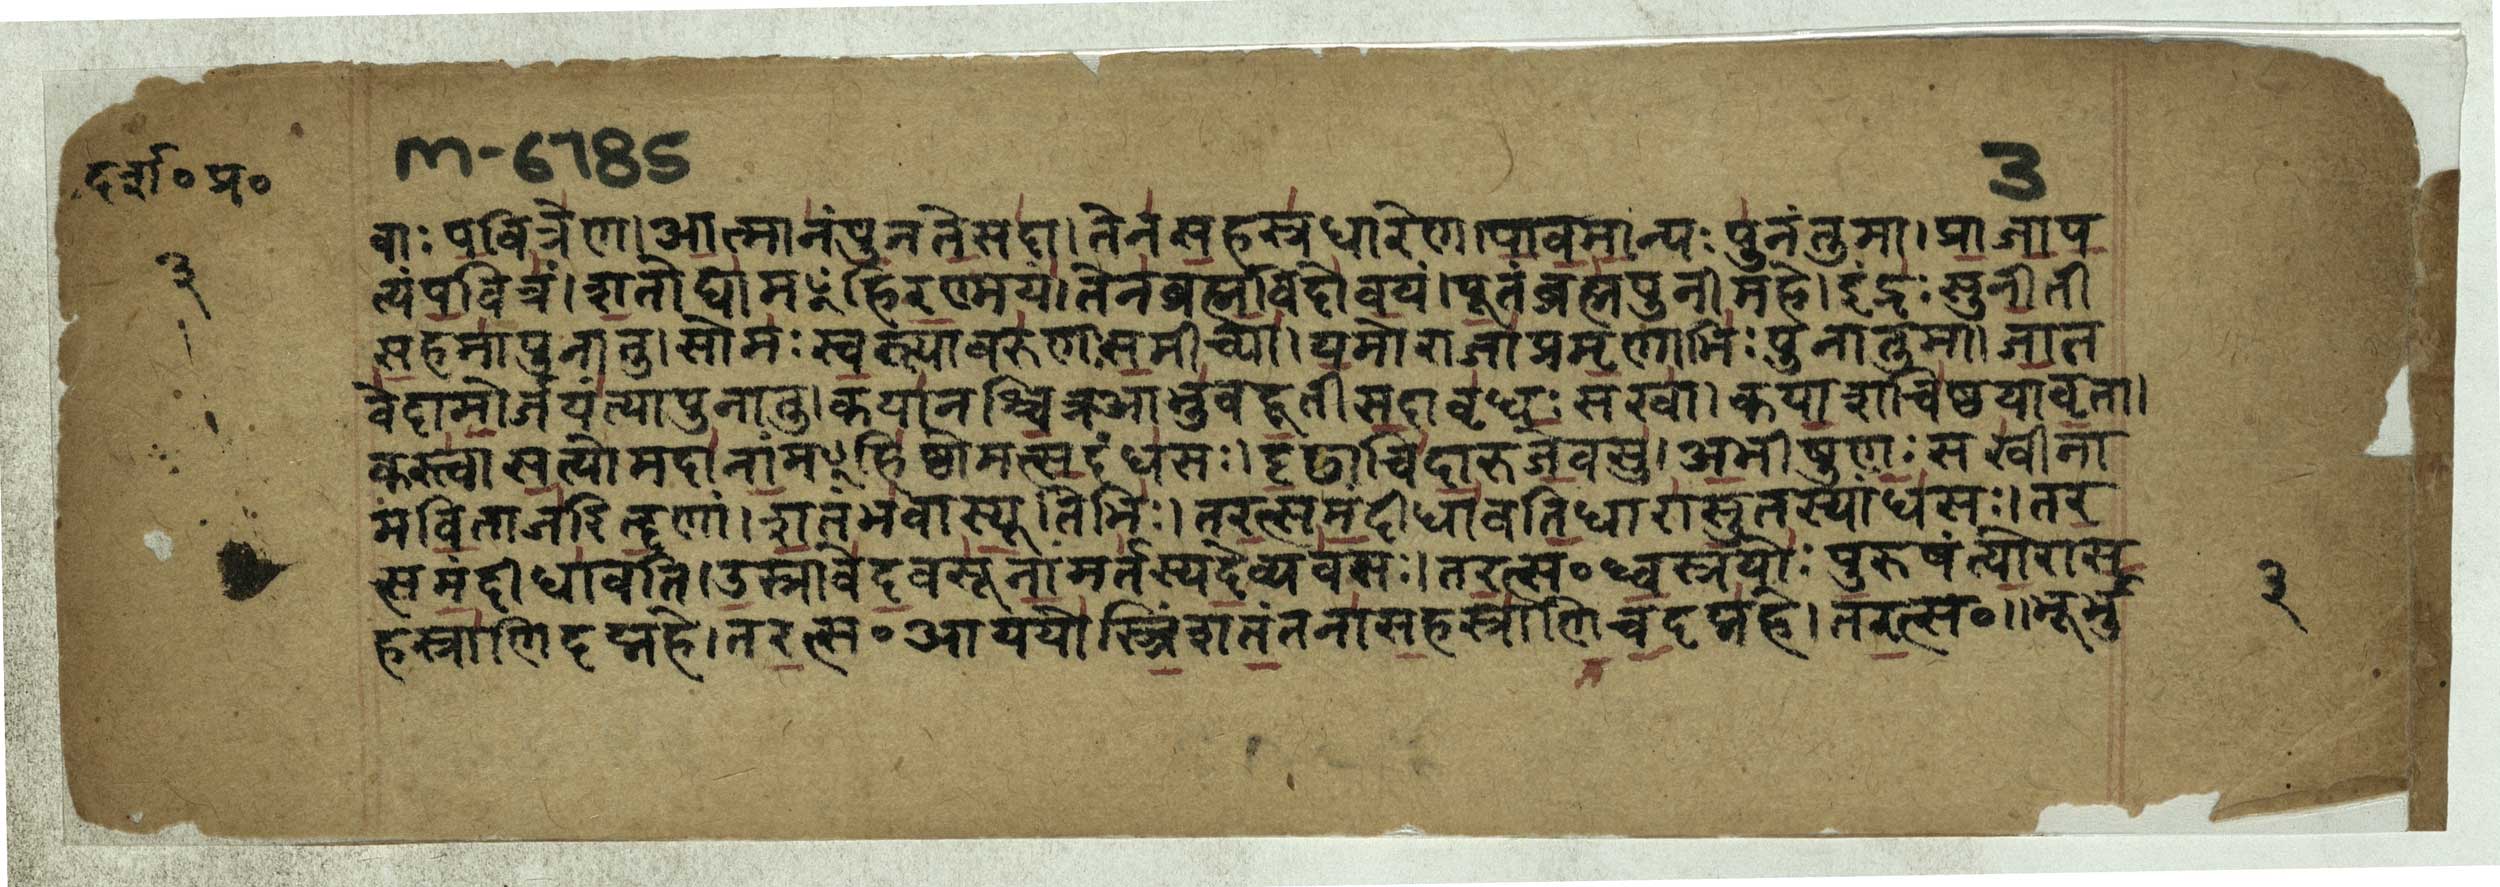 M-6785
3
दर्श॰ प्र॰
३
वाः पवित्रेण। आत्मानं पुनते सदा। तेन सहस्रधारेण। पावमान्यः पुनंतु मा। प्राजाप
त्यं पवित्रं। शतोद्याम ꣳ हिरण्मयं। तेन ब्रह्मविदो वयं। पूतं ब्रह्म पुनीमहे। इंद्रः सुनीती
सह मा पुनातु। सोमः स्वस्त्या वरुणः समीच्या। यमो राजा प्रमृणाभिः पुनातु मा। जात
वेदा मोर्जयंत्या पुनातु। कया नश्चित्र आ भुवदूती सदावृधः सखा। कया शचिष्ठया वृता।
कस्त्वा सत्यो मदानां म ꣳ हिष्ठो मत्सदंधसः। दृढा चिदारुजे वसु। अभी षु णः सखीना
मविता जरितॄणां। शतं भवास्यूतिभिः। तरत्स मंदी धावति धारा सुतस्यांधसः। तर
त्स मंदी धावति। उस्रा वेद वसूनां मर्तस्य देव्यवसः। तरत्स॰ ध्वस्रयोः पुरुषंत्योरा स
हस्राणि दद्महे। तरत्स॰ आ ययोस्त्रिंशतं तना सहस्राणि च दद्महे। तरत्स॰॥ भूर्भु
३